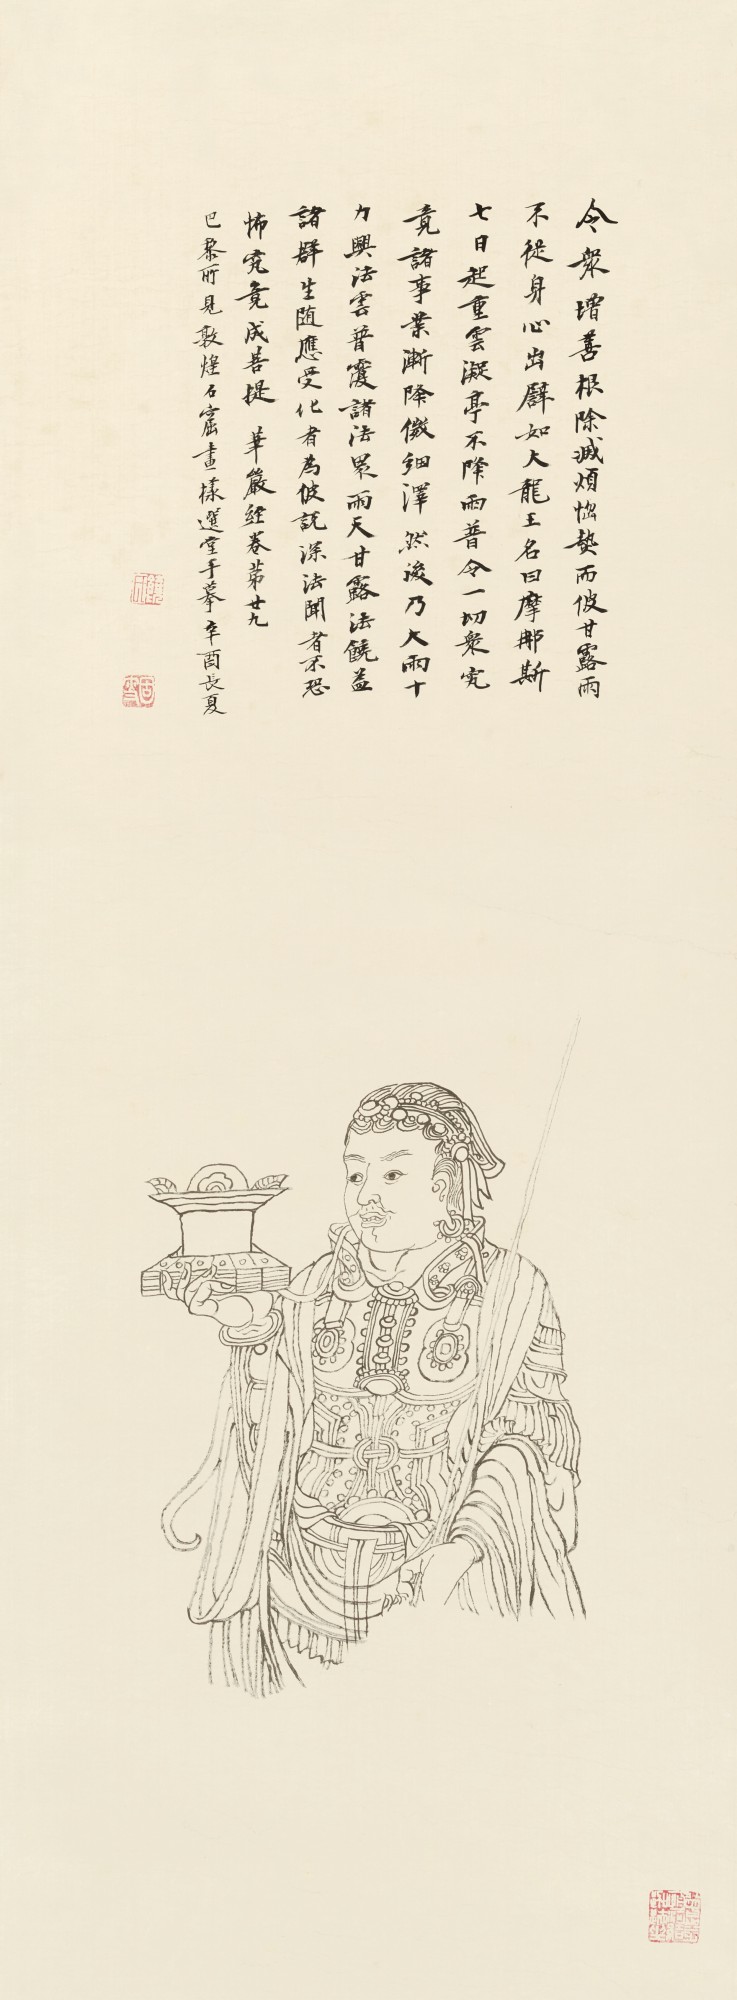 令衆增善根除滅煩惱熱而彼甘露雨
不從身心出譬如大龍王名曰摩那斯
七日起重雲凝亭不降雨普令一切衆究
竟諸事業漸降微細澤然後乃大雨十
力興法雲普覆諸法界雨天甘露法饒益
諸群生随應受化者為彼説深法聞者不恐
怖究竟成菩提 華嚴經卷第廿九
巴黎所見敦煌石窟畫樣選堂手摹辛酉長夏